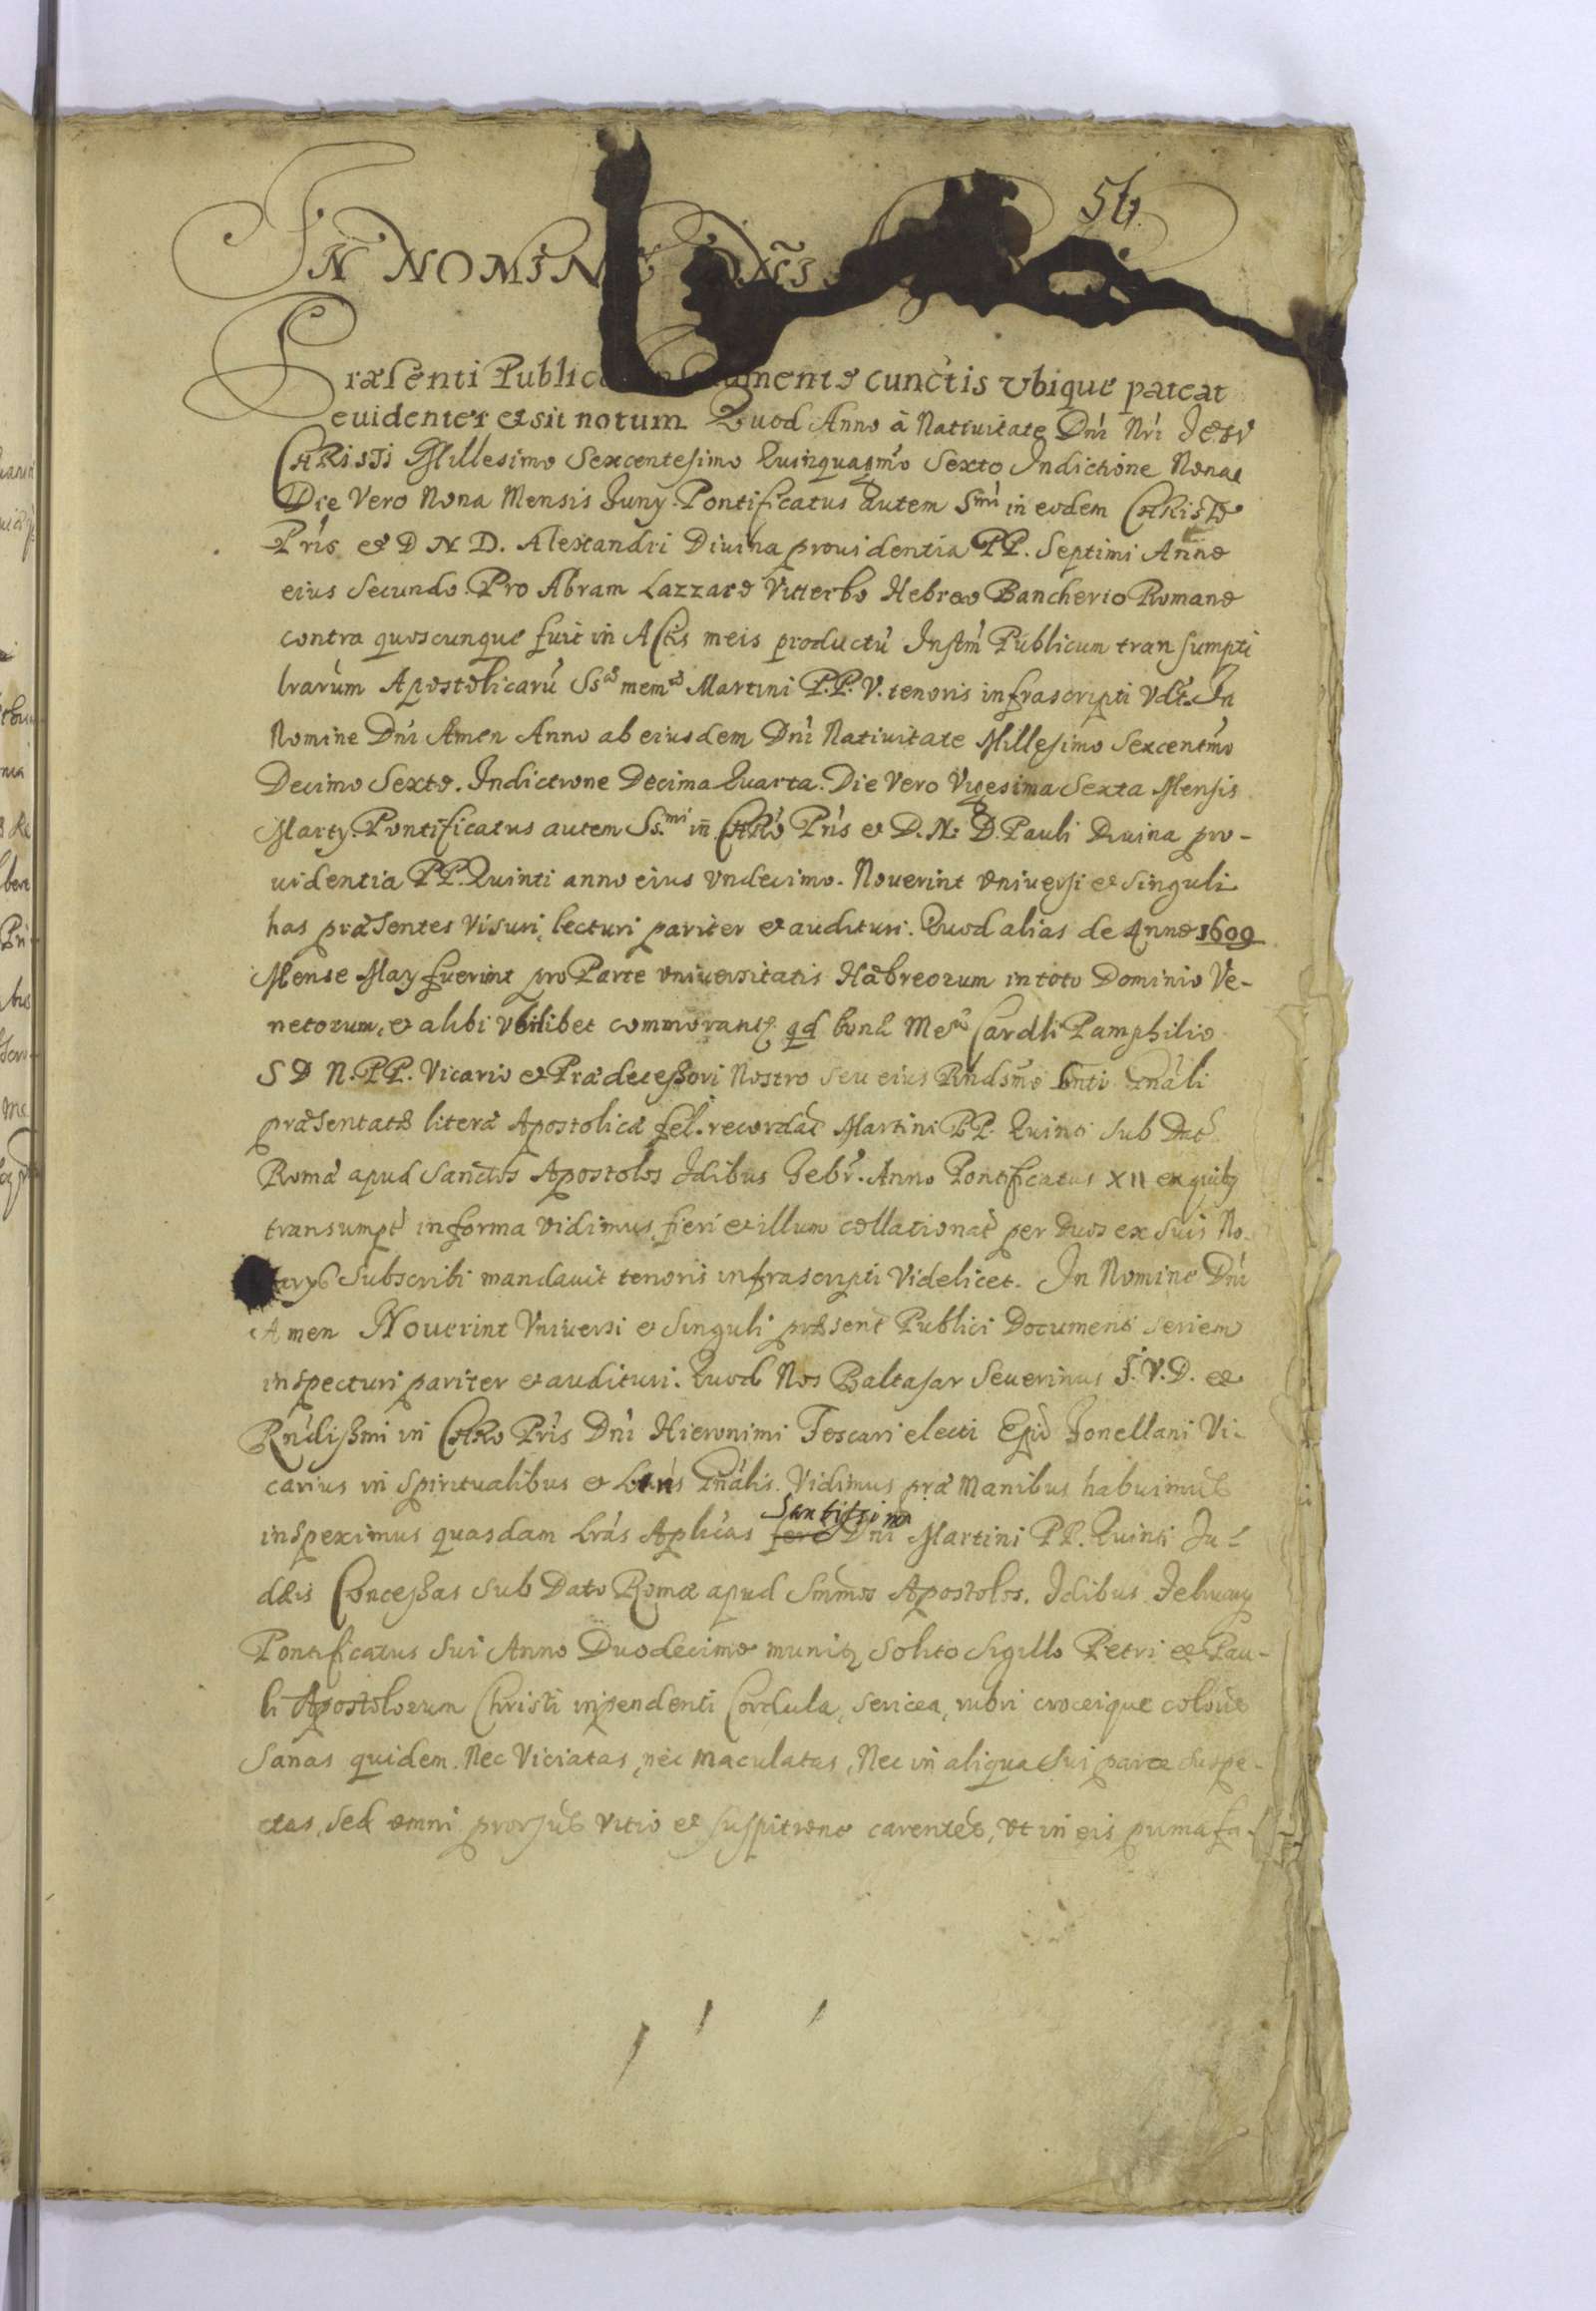 IN NOMINE DÑI
Præsenti Publico Instrumento cunctis vbique pateat
euidenter et sit notum Quod Anno à Natiuitate Dnì Nrì Iesv
CHRISTI Millesimo Sexcentesimo Quinquagmo Sexto Indictione Nona
Die Vero Nona Mensis Iuny Pontificatus autem Smi in eodem CHRISTO
Prìs et D N D. Alexandri Diuina prouidentia PP. Septimi Anno
eius Secundo Pro Abram Lazzaro Viterbo Hebreo Bancherio Romano
contra quoscunque fuit in Actis meis productũ Instm̃ Publicum transumpti
lrarùm Apostolicarũ Ss.æ mem.æ Martini P.P. V. tenoris infrascripti Vdt. In
Nomine Dnì Amen Anno ab eiusdem Dnì Natiuitate Millesimo Sexcentmo
Decimo Sexto. Indictione Decima Quarta. Die Vero Vigesima Sexta Mensis
Marty. Pontificatus autem Ss.mi in CHRO Prìs et D. N. D. Pauli Diuina pro-
uidentia PP. Quinti anno eius Vndecimo. Nouerint vniuersi et Singuli
has præsentes Visuri, lecturi pariter et audituri. Quod alias de Anno 1609
Mense May fuerint pro Parte vniuersitatis Hæbreorum in toto Dominio Ve-
netorum, et alibi Vbilibet commorantȝ qd bonæ Meæ Cardli Pamphilio
S D N. PP. Vicario et Prædecessori Nostro seu eius Rndsmo lònti Gnàli
præsentatæ literæ Apostolicæ fel. recordat̃ Martini PP. Quinti sub Dat̃
Romæ apud Sanctos Apostolos Idibus Febr̃. Anno Pontificatus XII ex quibȝ
transumpt̃ in forma vidimus fieri et illum collationat̃ per Duos ex Suis No-
tarys Subscribi mandauit tenoris infrascripti Videlicet. In Nomine Dnì
Amen Nouerint Vniuersi et Singuli præsent̃ Publici Documenti seriem
inspecturi pariter et audituri. Quod Nos Baltasar Seuerinus I. V. D. et
Rndissmi in CHRO Prìs Dnì Hieronimi Foscari electi Epìi Torcellani Vi-
carius in Spiritualibus et Gnàlis. Vidimus præ Manibus habuimus
inspeximus quasdam Lràs Aplicas Santissimi Dnì Martini PP. Quinti Iu-
dæis Concessas Sub Dato Romæ apud Smmos Apostolos. Idibus February
Pontificatus Sui Anno Duodecimo munitȝ Solito Sigillo Petri et Pau-
li Apostolorum Christi inpendenti Cordula, sericea, rubri croceique coloris
Sanas quidem. Nec Viciatas, nec Maculatas, Nec in aliqua Sui parte suspe-
ctas, sed omni prorsus vitio et suspitione carentes, vt in eis prima fa-